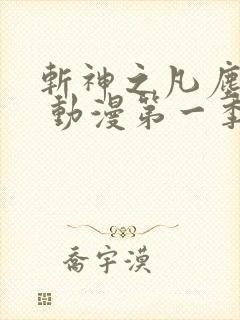 斬神之凡塵
動漫第一季
喬宇漠